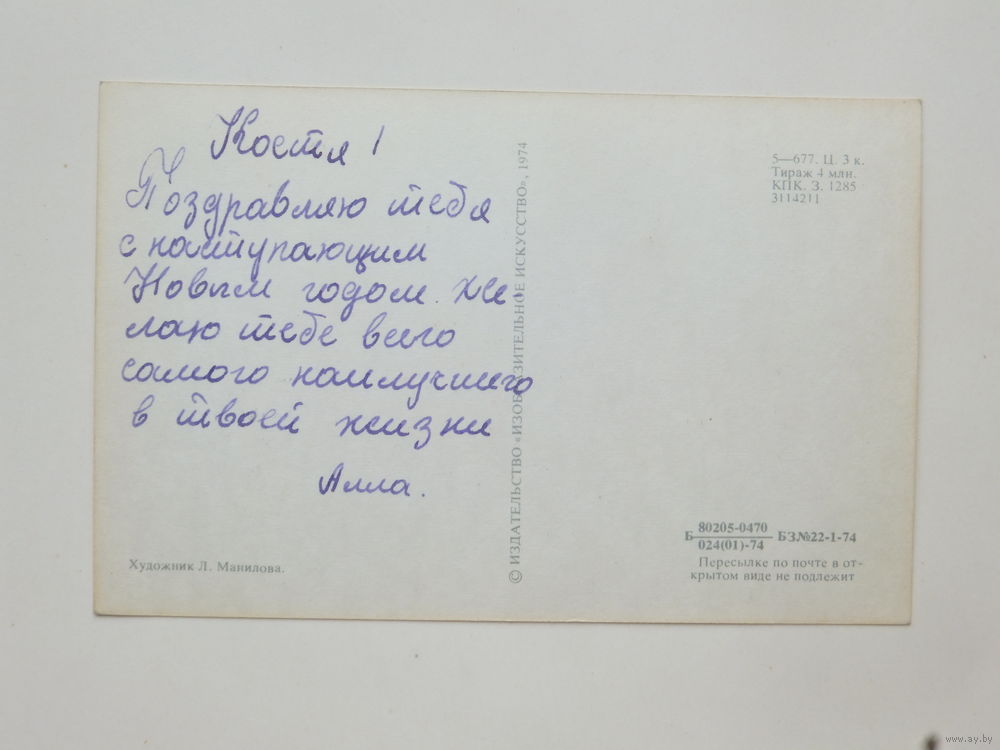 Костя!
Поздравляю тебя
с наступающим
Новым годом. Же,
лаю тебе всего
самого наилучшего
в твоей жизни
Алла.
Художник Л. Манилова.
© ИЗДАТЕЛЬСТВО «ИЗОБРАЗИТЕЛЬНОЕ ИСКУССТВО», 1974
5—677. Ц. 3 к.
Тираж 4 млн.
КПК. З. 1285
3114211
Б 80205-0470 БЗ№22-1-74
024(01)-74
Пересылке по почте в от-
крытом виде не подлежит
www.ay.by